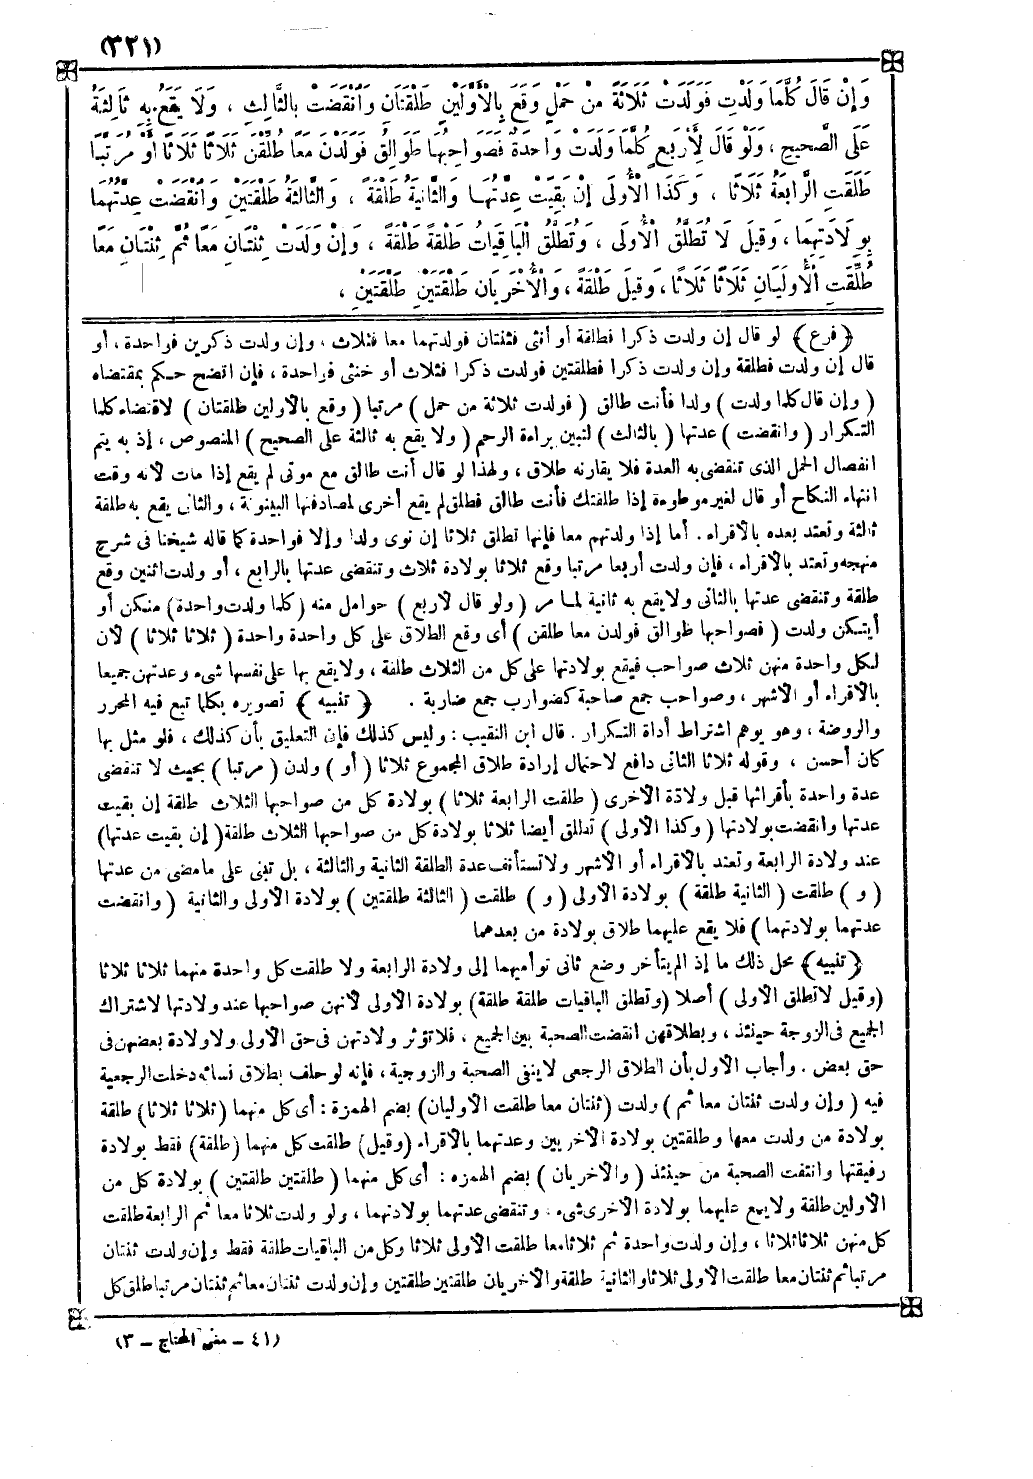 (٣٢١)
وَإِنْ قَالَ كُلَّمَا وَلَدْتِ فَوَلَدَتْ ثَلَاثَةً مِنْ حَمْلٍ وَقَعَ بِالْأَوَّلَيْنِ طَلْقَتَانِ وَانْقَضَتْ بِالثَّالِثِ ، وَلَا يَقَعُ بِهِ ثَالِثَةٌ
عَلَى الصَّحِيحِ ، وَلَوْ قَالَ لِأَرْبَعٍ كُلَّمَا وَلَدَتْ وَاحِدَةٌ فَصَوَاحِبُهَا طَوَالِقُ فَوَلَدْنَ مَعًا طُلِّقْنَ ثَلَاثًا ثَلَاثًا أَوْ مُرَتَّبًا
طَلَقَتِ الرَّابِعَةُ ثَلَاثًا ، وَكَذَا الْأُولَى إِنْ بَقِيَتْ عِدَّتُهَا وَالثَّانِيَةُ طَلْقَةً ، وَالثَّالِثَةُ طَلْقَتَيْنِ وَانْقَضَتْ عِدَّتُهُمَا
بِوِلَادَتِهِمَا ، وَقِيلَ لَا تُطَلَّقُ الْأُولَى ، وَتُطَلَّقُ الْبَاقِيَاتُ طَلْقَةً طَلْقَةً ، وَإِنْ وَلَدَتْ ثِنْتَانِ مَعًا ثُمَّ ثِنْتَانِ مَعًا
طُلِّقَتِ الْأُولَيَانِ ثَلَاثًا ثَلَاثًا ، وَقِيلَ طَلْقَةً ، وَالْأُخْرَيَانِ طَلْقَتَيْنِ طَلْقَتَيْنِ ،
﴿ فرع ﴾ لو قال إن ولدت ذكرا فطلقة أو أنثى فثنتان فولدتهما معا فثلاث ، وإن ولدت ذكرين فواحدة ، أو
قال إن ولدت فطلقة وإن ولدت ذكرا فطلقتين فولدت ذكرا فثلاث أو خنثى فواحدة ، فإن اتضح حكم بمقتضاه
( وإن قال كلما ولدت ) ولدا فأنت طالق ( فولدت ثلاثة من حمل ) مرتبا ( وقع بالأولين طلقتان ) لاقتضاء كلما
التكرار ( وانقضت ) عدتها ( بالثالث ) لتبين براءة الرحم ( ولا يقع به ثالثة على الصحيح ) المنصوص ، إذ به يتم
انفصال الحمل الذى تنقضى به العدة فلا يقارنه طلاق ، ولهذا لو قال أنت طالق مع موتى لم يقع إذا مات لأنه وقت
انتهاء النكاح أو قال لغير موطوءة إذا طلقتك فأنت طالق فطلق لم يقع أخرى لمصادفتها البينونة ، والثانى يقع به طلقة
ثالثة وتعتد بعده بالأقراء . أما إذا ولدتهم معا فإنها تطلق ثلاثا إن نوى ولدا وإلا فواحدة كما قاله شيخنا فى شرح
منهجه وتعتد بالأقراء ، فإن ولدت أربعا مرتبا وقع ثلاثا بولادة ثلاث وتنقضى عدتها بالرابع ، أو ولدت اثنين وقع
طلقة وتنقضى عدتها بالثانى ولا يقع به ثانية لما مر ( ولو قال لأربع ) حوامل منه ( كلما ولدت واحدة ) منكن أو
أيتكن ولدت ( فصواحبها طوالق فولدن معا طلقن ) أى وقع الطلاق على كل واحدة واحدة ( ثلاثا ثلاثا ) لأن
لكل واحدة منهن ثلاث صواحب فيقع بولادتها على كل من الثلاث طلقة ، ولا يقع بها على نفسها شىء وعدتهن جميعا
بالأقراء أو الأشهر ، وصواحب جمع صاحبة كضوارب جمع ضاربة . ﴿ تنبيه ﴾ تصويره بكلما تبع فيه المحرر
والروضة ، وهو يوهم اشتراط أداة التكرار . قال ابن النقيب : وليس كذلك فإن التعليق بأن كذلك ، فلو مثل بها
كان أحسن ، وقوله ثلاثا الثانى دافع لاحتمال إرادة طلاق المجموع ثلاثا ( أو ) ولدن ( مرتبا ) بحيث لا تنقضى
عدة واحدة بأقرائها قبل ولادة الأخرى ( طلقت الرابعة ثلاثا ) بولادة كل من صواحبها الثلاث طلقة إن بقيت
عدتها وانقضت بولادتها ( وكذا الأولى ) تطلق أيضا ثلاثا بولادة كل من صواحبها الثلاث طلقة ( إن بقيت عدتها )
عند ولادة الرابعة وتعتد بالأقراء أو الأشهر ولا تستأنف عدة الطلقة الثانية والثالثة ، بل تبنى على ما مضى من عدتها
( و ) طلقت ( الثانية طلقة ) بولادة الأولى ( و ) طلقت ( الثالثة طلقتين ) بولادة الأولى والثانية ( وانقضت
عدتهما بولادتهما ) فلا يقع عليهما طلاق بولادة من بعدهما
﴿ تنبيه ﴾ محل ذلك ما إذا لم يتأخر وضع ثانى توأميهما إلى ولادة الرابعة ولا طلقت كل واحدة منهما ثلاثا ثلاثا
( وقيل لا تطلق الأولى ) أصلا ( وتطلق الباقيات طلقة طلقة ) بولادة الأولى لأنهن صواحبها عند ولادتها لاشتراك
الجميع فى الزوجة حينئذ ، وبطلاقهن انقضت الصحبة بين الجميع ، فلا تؤثر ولادتهن فى حق الأولى ولا ولادة بعضهن فى
حق بعض . وأجاب الأول بأن الطلاق الرجعى لا ينفى الصحبة والزوجية ، فإنه لو حلف بطلاق نسائه دخلت الرجعية
فيه ( وإن ولدت ثنتان معا ثم ) ولدت ( ثنتان معا طلقت الأوليان ) بضم الهمزة : أى كل منهما ( ثلاثا ثلاثا ) طلقة
بولادة من ولدت معها وطلقتين بولادة الأخريين وعدتهما بالأقراء ( وقيل ) طلقت كل منهما ( طلقة ) فقط بولادة
رفيقتها وانتفت الصحبة من حينئذ ( والأخريان ) بضم الهمزه : أى كل منهما ( طلقتين طلقتين ) بولادة كل من
الأولين طلقة ولا يقع عليهما بولادة الأخرى شىء ، وتنقضى عدتهما بولادتهما ، ولو ولدت ثلاثا معا ثم الرابعة طلقت
كل منهن ثلاثا ثلاثا ، وإن ولدت واحدة ثم ثلاثا معا طلقت الأولى ثلاثا وكل من الباقيات طلقة فقط وإن ولدت ثنتان
مرتبا ثم ثنتان معا طلقت الأولى ثلاثا والثانية طلقة والأخريان طلقتين طلقتين وإن ولدت ثنتان معا ثم ثنتان مرتبا طلق كل
(٤١ - مغنى المحتاج - ٣)